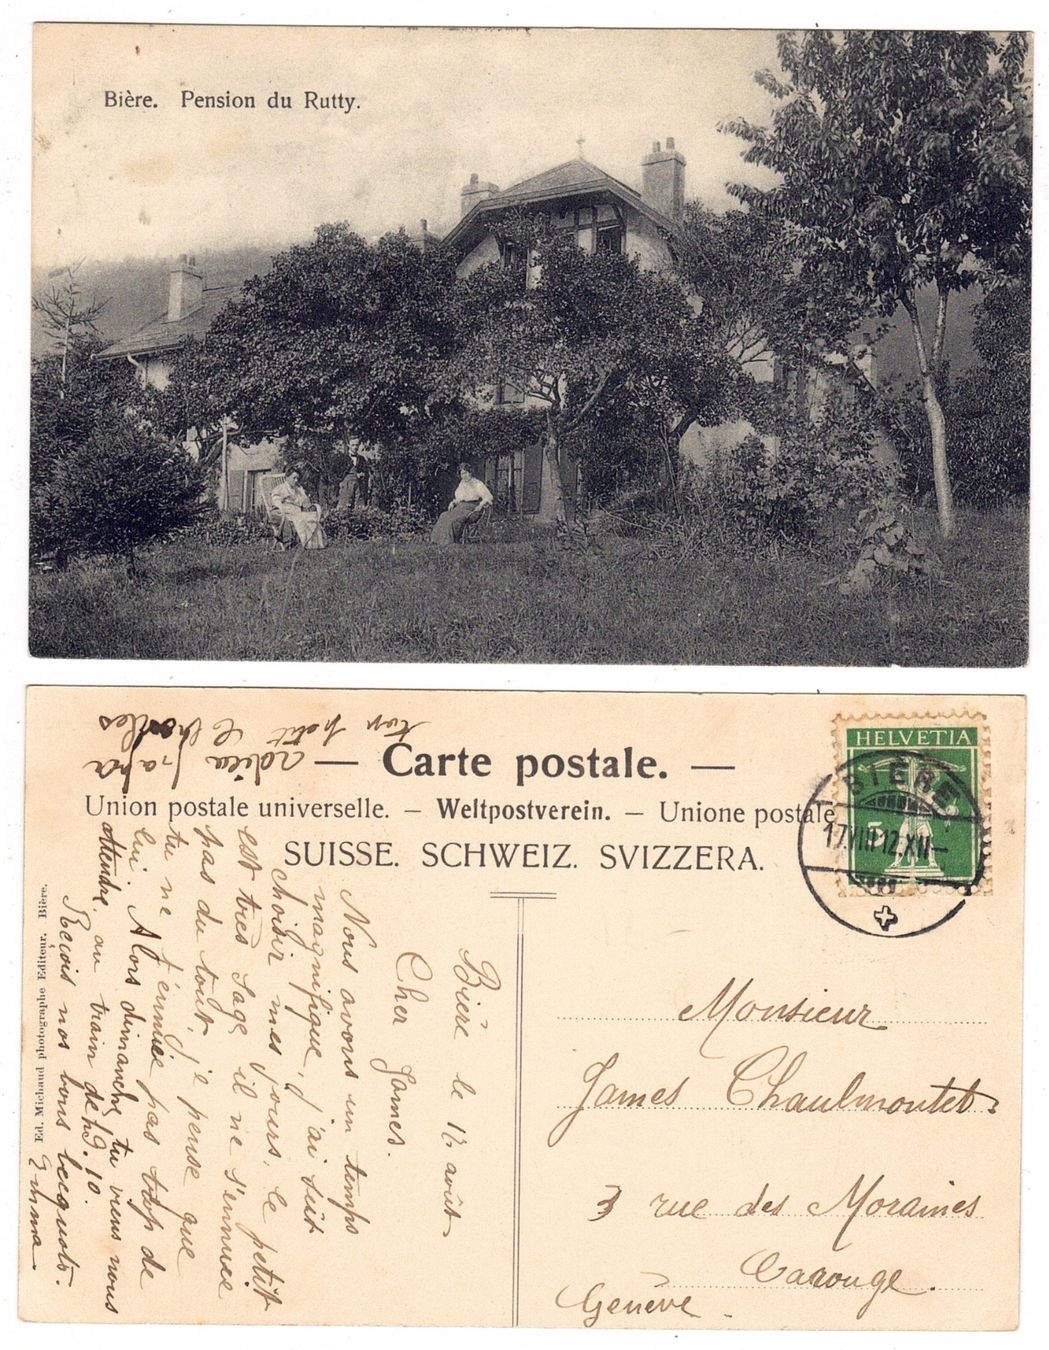 Bière. Pension du Rutty.
— Carte postale. —
Union postale universelle. — Weltpostverein. — Unione postale
SUISSE. SCHWEIZ. SVIZZERA.
HELVETIA
5
BIÈRE
17.VIII.12.XII–
Ed. Michaud photographe Editeur. Bière.
Bière le 17 août
Cher James.
Nous avons un temps
magnifique, j'ai
choisir mes jours, le petit
est très sage, il ne s'ennuie
pas du tout, je pense que
tu ne t'ennuie pas trop de
lui. Alors dimanche, tu viens nous
attendre au train de 19.10.
Reçois nos bons becquots.
Emma.
adieu papa
ton petit Charles
Monsieur
James Chaulmontet
3 rue des Moraines
Carouge.
Genève